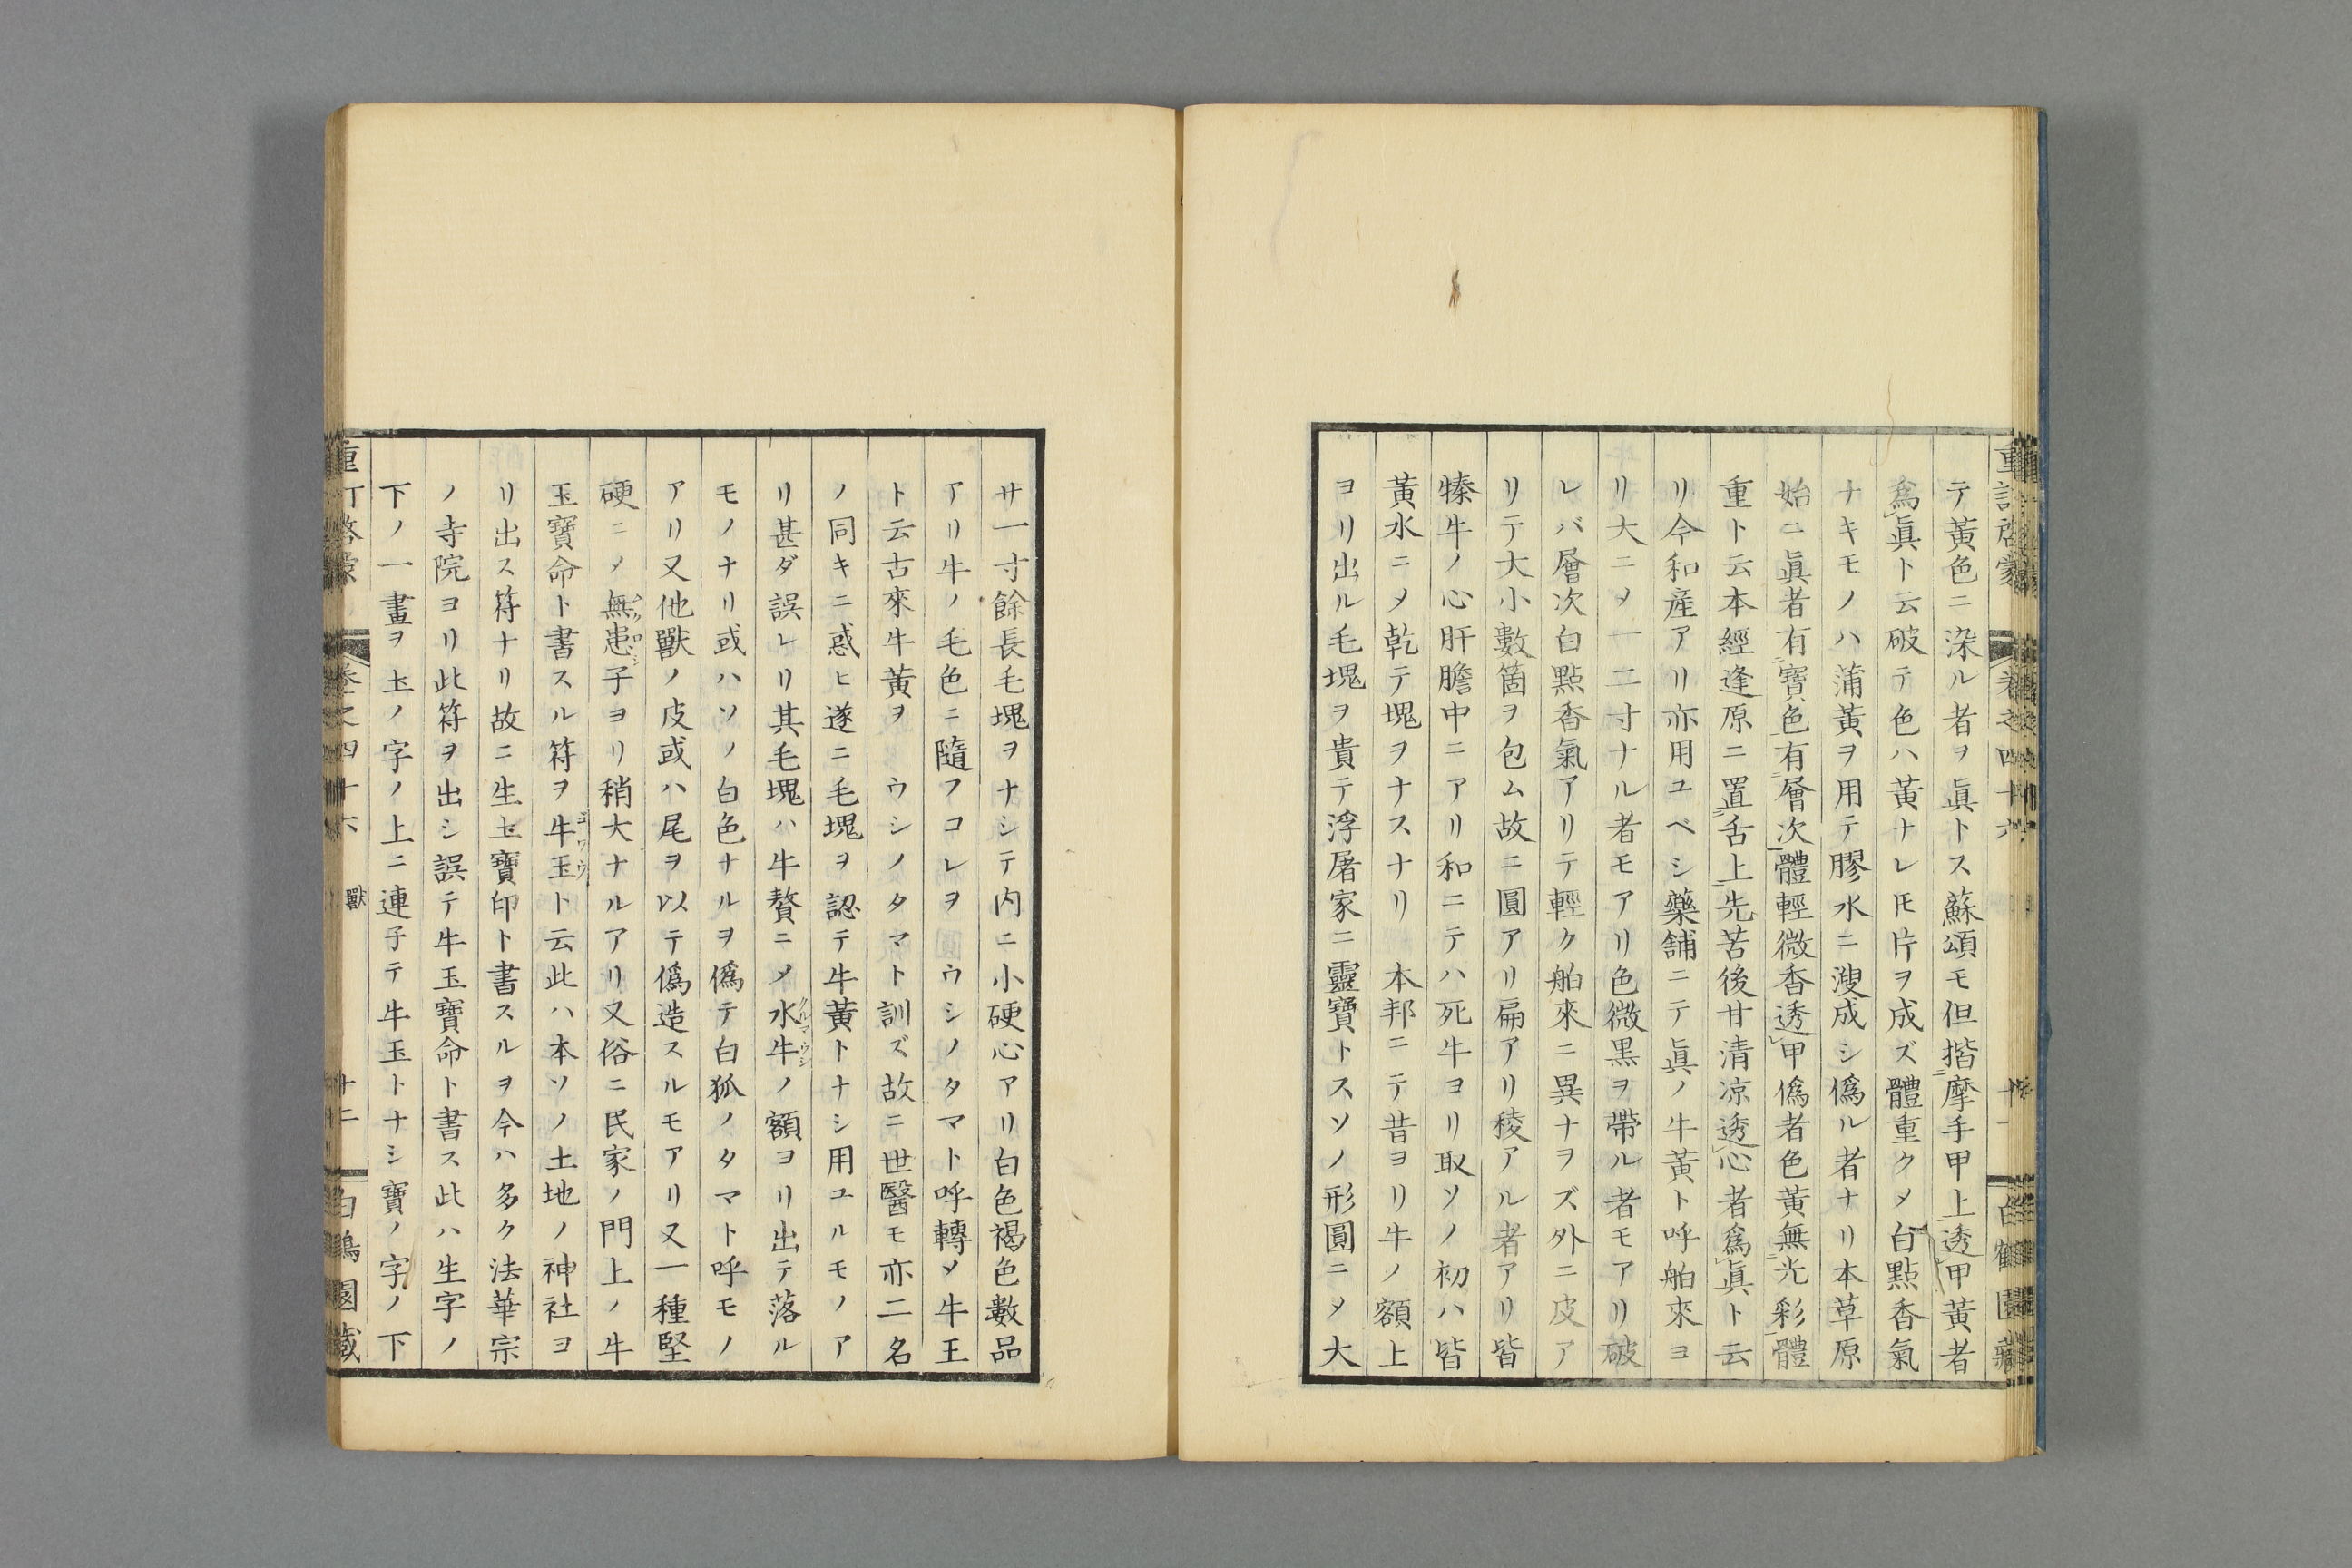 テ黃色ニ染ル者ヲ眞トス蘇頌モ但揩摩手甲上透甲黃者
爲眞ト云破テ色ハ黃ナレ𪜈片ヲ成ズ體重クメ白點香氣
ナキモノハ蒲黃ヲ用テ膠水ニ溲成シ僞ル者ナリ本草原
始ニ眞者有寶色有層次體輕微香透甲僞者色黃無光彩體
重ト云本經逢原ニ置舌上先苦後甘清凉透心者爲眞ト云
リ今和産アリ亦用ユベシ藥舖ニテ眞ノ牛黃ト呼舶來ヨ
リ大ニメ一二寸ナル者モアリ色微黒ヲ帶ル者モアリ破
レバ層次白點香氣アリテ輕ク舶來ニ異ナヲズ外ニ皮ア
リテ大小數箇ヲ包ム故ニ圓アリ扁アリ稜アル者アリ皆
㹛牛ノ心肝膽中ニアリ和ニテハ死牛ヨリ取ソノ初ハ皆
黃水ニメ乾テ塊ヲナスナリ 本邦ニテ昔ヨリ牛ノ額上
ヨリ出ル毛塊ヲ貴テ浮屠家ニ靈寶トスソノ形圓ニメ大
サ一寸餘長毛塊ヲナシテ内ニ小硬心アリ白色褐色數品
アリ牛ノ毛色ニ隨フコレヲ ウシノタマト呼轉メ牛王
ト云古來牛黃ヲ ウシノタマト訓ズ故ニ世醫モ亦二名
ノ同キニ惑ヒ遂ニ毛塊ヲ認テ牛黃トナシ用ユルモノア
リ甚ダ誤レリ其毛塊ハ牛贅ニメ水牛ノ額ヨリ出テ落ル
クルマウシ
モノナリ或ハソノ白色ナルヲ僞テ白狐ノタマト呼モノ
アリ又他獸ノ皮或ハ尾ヲ以テ僞造スルモアリ又一種堅
硬ニメ無患子ヨリ稍大ナルアリ又俗ニ民家ノ門上ノ牛
玉寶命ト書スル符ヲ牛玉ト云此ハ本ソノ土地ノ神社ヨ
ゴワウ
リ出ス符ナリ故ニ生𡈽寶印ト書スルヲ今ハ多ク法華宗
ノ寺院ヨリ此符ヲ出シ誤テ牛玉寶命ト書ス此ハ生字ノ
下ノ一畫ヲ𡈽ノ字ノ上ニ連子テ牛玉トナシ寶ノ字ノ下
卷之四十六 獸 十二